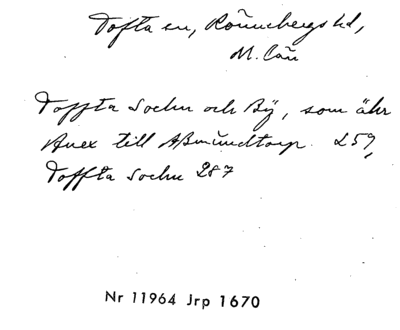 Tofta sn, Rönnebergs hd,
M. län
Toffta Sochn och Bÿ, som ähr
Anex till Aßmŭndtorp. 259,
Toffta sochn 287
Nr 11964 Jrp 1670